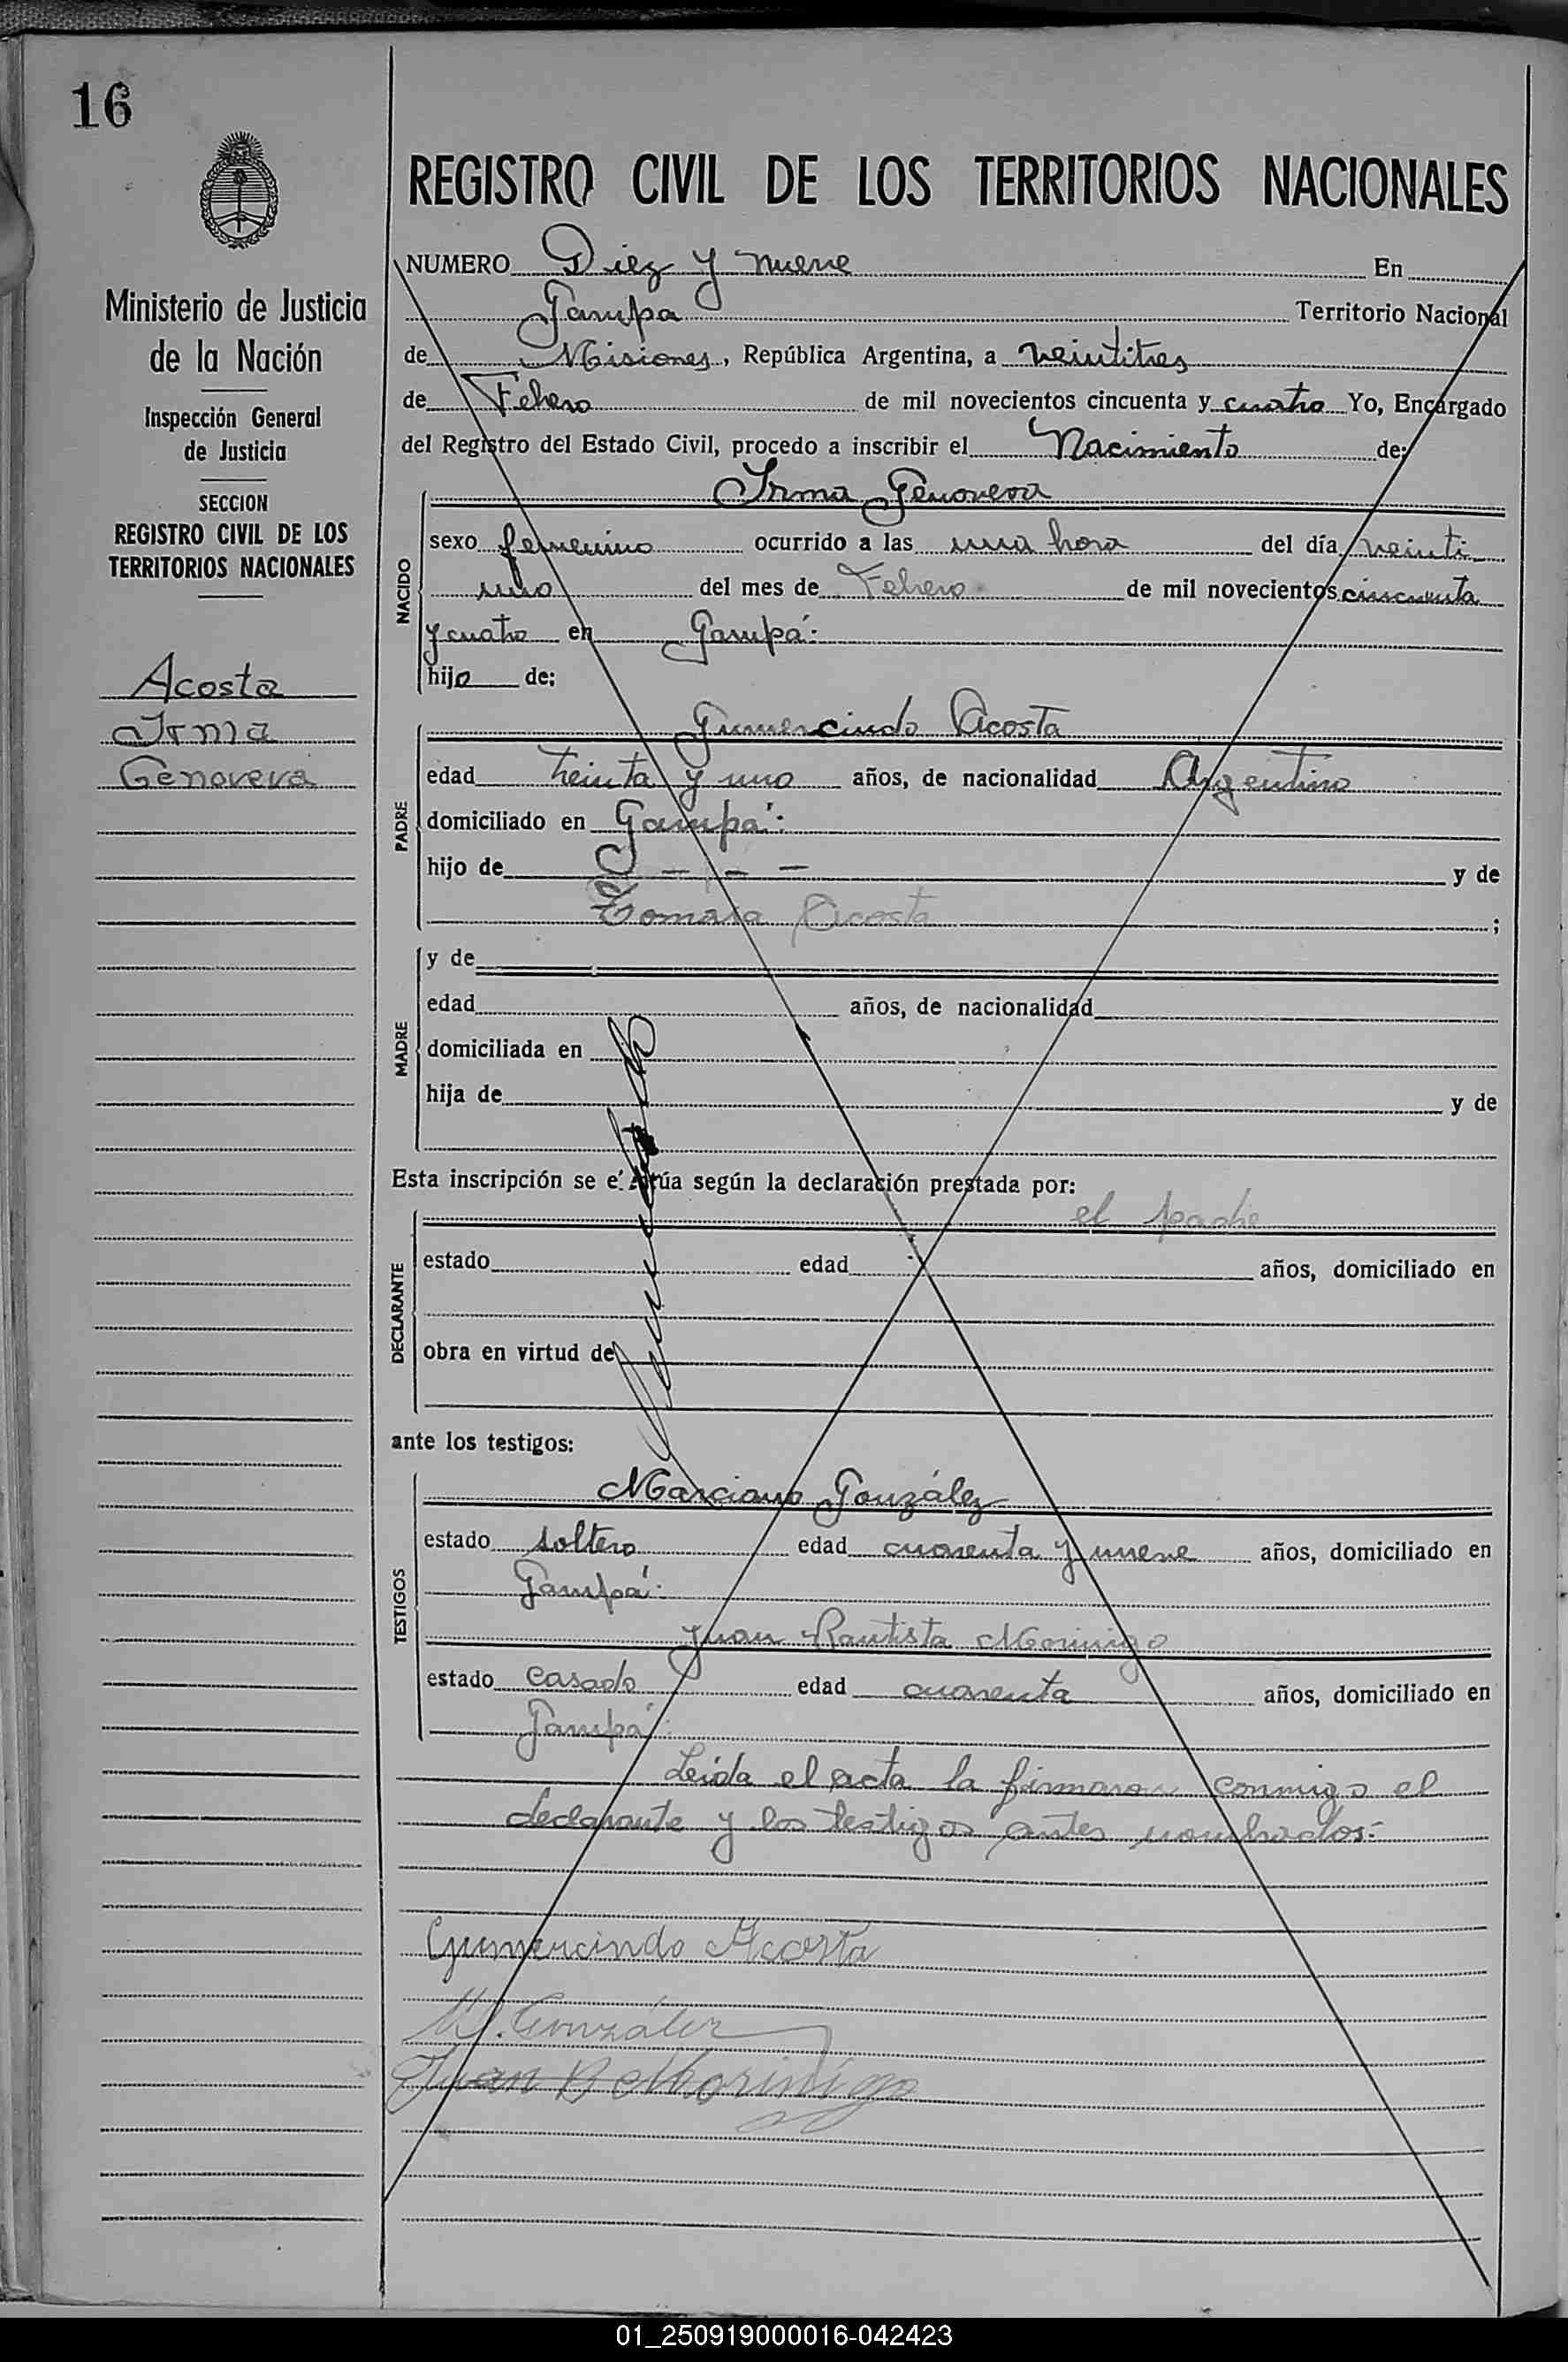 16
REGISTRO CIVIL DE LOS TERRITORIOS NACIONALES
Ministerio de Justicia
de la Nación
Inspección General
de Justicia
SECCION
REGISTRO CIVIL DE LOS
TERRITORIOS NACIONALES
Acosta
Irma
Genoveva
NUMERO Diez y nueve En
Garupa Territorio Nacional
de Misiones, República Argentina, a veintitres
de Febrero de mil novecientos cincuenta y cuatro Yo, Encargado
del Registro del Estado Civil, procedo a inscribir el Nacimiento de:
Irma Genoveva
NACIDO
sexo femenino ocurrido a las una hora del día veinti
uno del mes de Febrero de mil novecientos cincuenta
y cuatro en Garupá:
hija de:
Gumercindo Acosta
PADRE
edad treinta y uno años, de nacionalidad Argentino
domiciliado en Garupá:
hijo de — — — y de
Tomasa Acosta ;
MADRE
y de
edad años, de nacionalidad
domiciliada en
hija de y de
Esta inscripción se efectúa según la declaración prestada por:
el padre
DECLARANTE
estado edad años, domiciliado en
obra en virtud de
ante los testigos:
Marciano González
TESTIGOS
estado soltero edad cuarenta y nueve años, domiciliado en
Garupá:
Juan Bautista Morinigo
estado casado edad cuarenta años, domiciliado en
Garupá:
Leida el acta la firmaron conmigo el
declarante y los testigos antes nombrados:-
Gumercindo Acosta
M. González
Juan B Morinigo
01_250919000016-042423